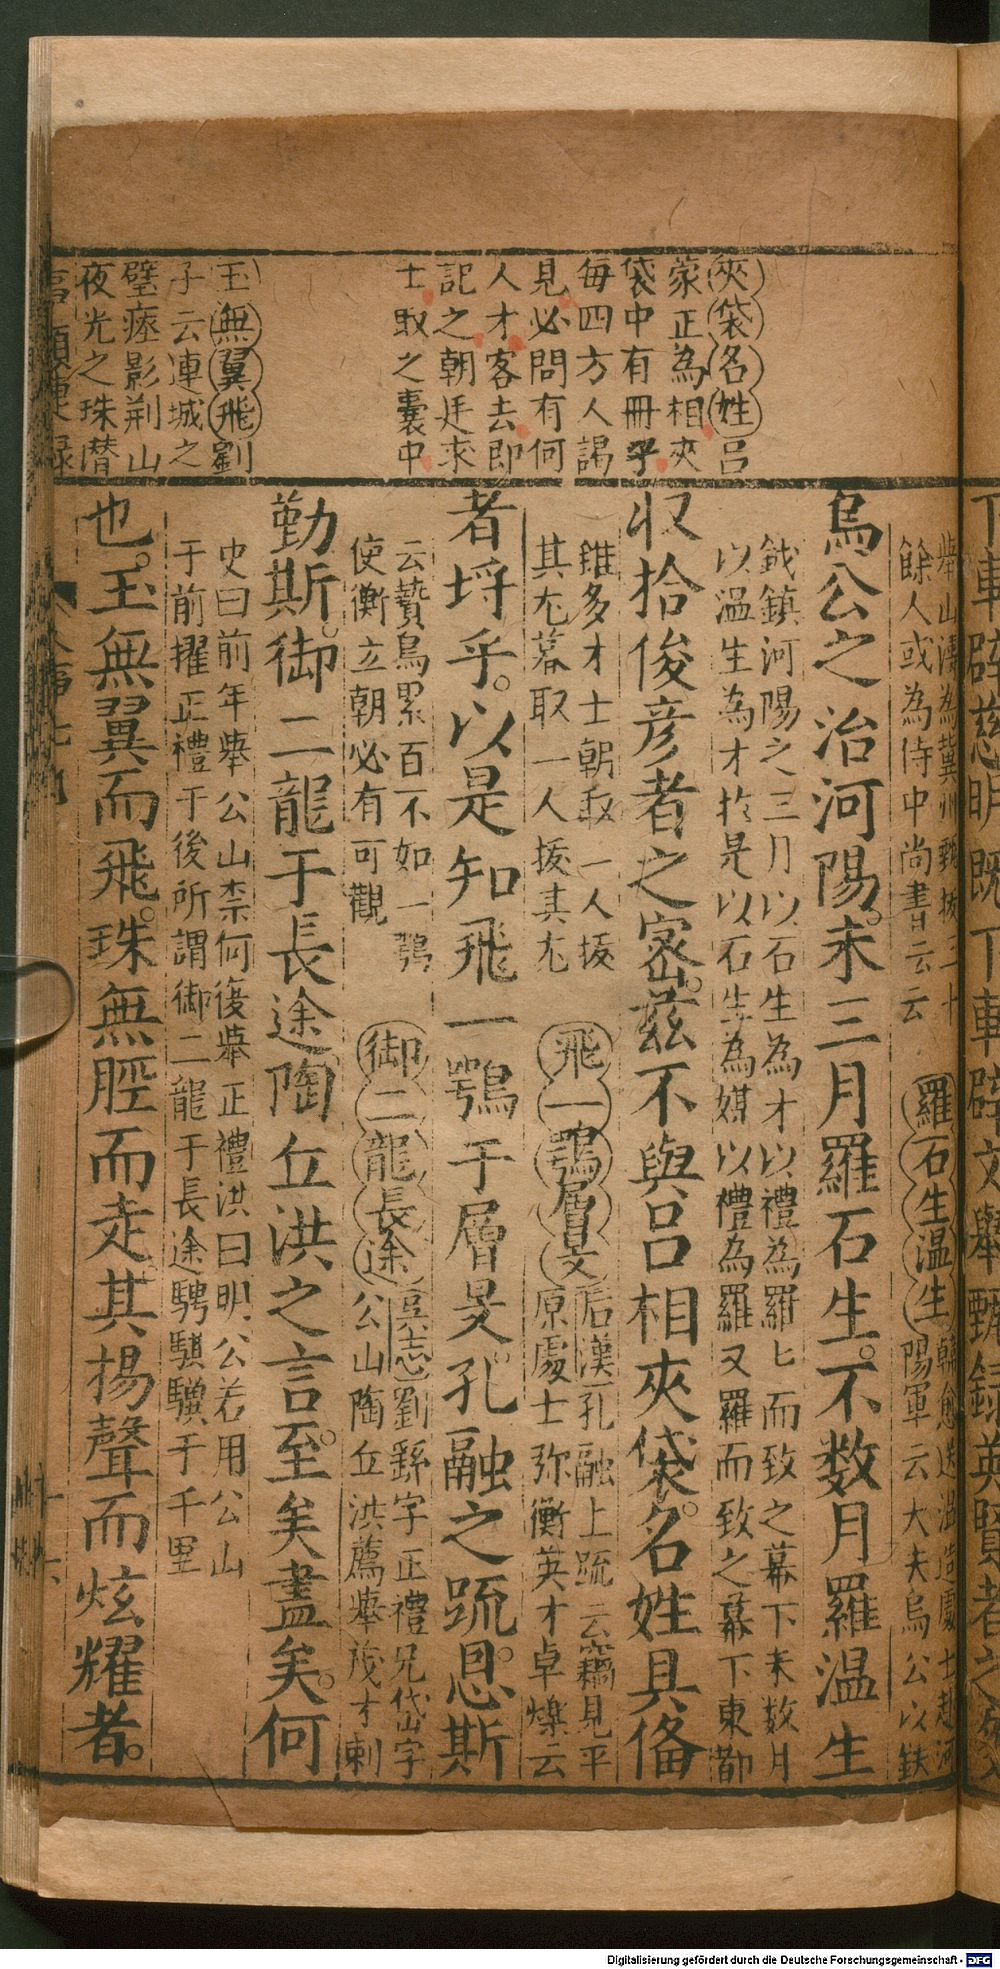 夾袋名姓呂
蒙正為相夾
袋中有冊子
每四方人謁
見必問有何
人才客去即
記之朝廷求
士取之囊中
玉無翼飛劉
子云連城之
璧瘞影荆山
夜光之珠潛
舉山濤為冀州甄拔三十
餘人或為侍中尚書云云
羅石生温生
韓愈送温造處士赴河
陽軍云大夫烏公以鈇
烏公之治河陽。未三月羅石生。不数月羅温生
鉞鎮河陽之三月以石生為才以禮為羅匕而致之幕下未数月
以温生為才扵是以石生為媒以禮為羅又羅而致之幕下東都
収拾俊彦者之宻。兹不與呂相夾袋。名姓具俻
雖多才士朝取一人拔
其尤暮取一人拔其尤
飛一鶚層旻
后漢孔融上䟽云竊見平
原處士弥衡英才卓爍云
者埒乎。以是知飛一鶚于層旻。孔融之䟽。恳斯
云鷙鳥累百不如一鶚
使衡立朝必有可觀
御二龍長途
吳志劉繇字正禮兄岱字
公山陶丘洪薦舉茂才刺
勤斯。御二龍于長途陶丘洪之言。至矣盡矣。何
史曰前年舉公山柰何復舉正禮洪曰明公若用公山
于前擢正禮于後所謂御二龍于長途騁騏驥于千里
也。玉無翼而飛。珠無脛而走其揚聲而炫耀者。
下車辟慈明既下車辟文舉甄録英賢者之
Digitalisierung gefördert durch die Deutsche Forschungsgemeinschaft - DFG